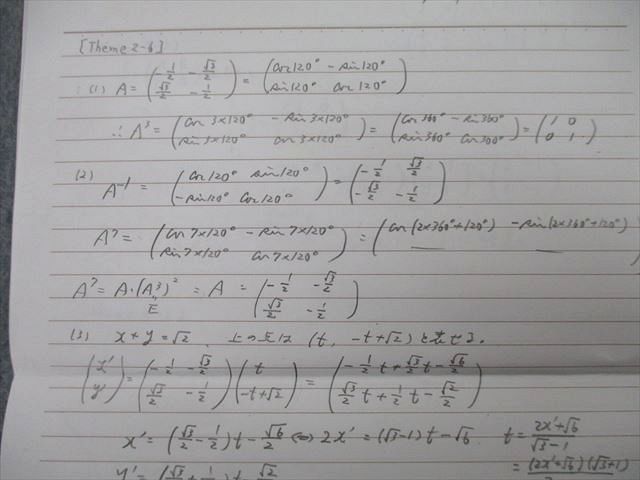 [Theme 2-6]
(1) A = (-1/2 -√3/2 ; √3/2 -1/2) = (cos120° -sin120° ; sin120° cos120°)
∴ A³ = (cos 3×120° -sin 3×120° ; sin 3×120° cos 3×120°) = (cos 360° -sin 360° ; sin 360° cos 360°) = (1 0 ; 0 1)
(2) A⁻¹ = (cos120° sin120° ; -sin120° cos120°) = (-1/2 √3/2 ; -√3/2 -1/2)
A⁷ = (cos 7×120° -sin 7×120° ; sin 7×120° cos 7×120°) = (cos(2×360°+120°) -sin(2×360°+120°)
A⁷ = A・(A³)² = A = (-1/2 -√3/2 ; √3/2 -1/2)
E
(3) x+y=√2 上の点は (t, -t+√2) と表せる.
(x' ; y') = (-1/2 -√3/2 ; √3/2 -1/2)(t ; -t+√2) = (-1/2 t + √3/2 t - √6/2 ; √3/2 t + 1/2 t - √2/2)
x' = (√3/2 - 1/2)t - √6/2 ⇔ 2x' = (√3-1)t - √6 t = (2x'+√6)/(√3-1)
y' = (√3/2 + 1/2)t - √2/2 = (2x'+√6)(√3+1)